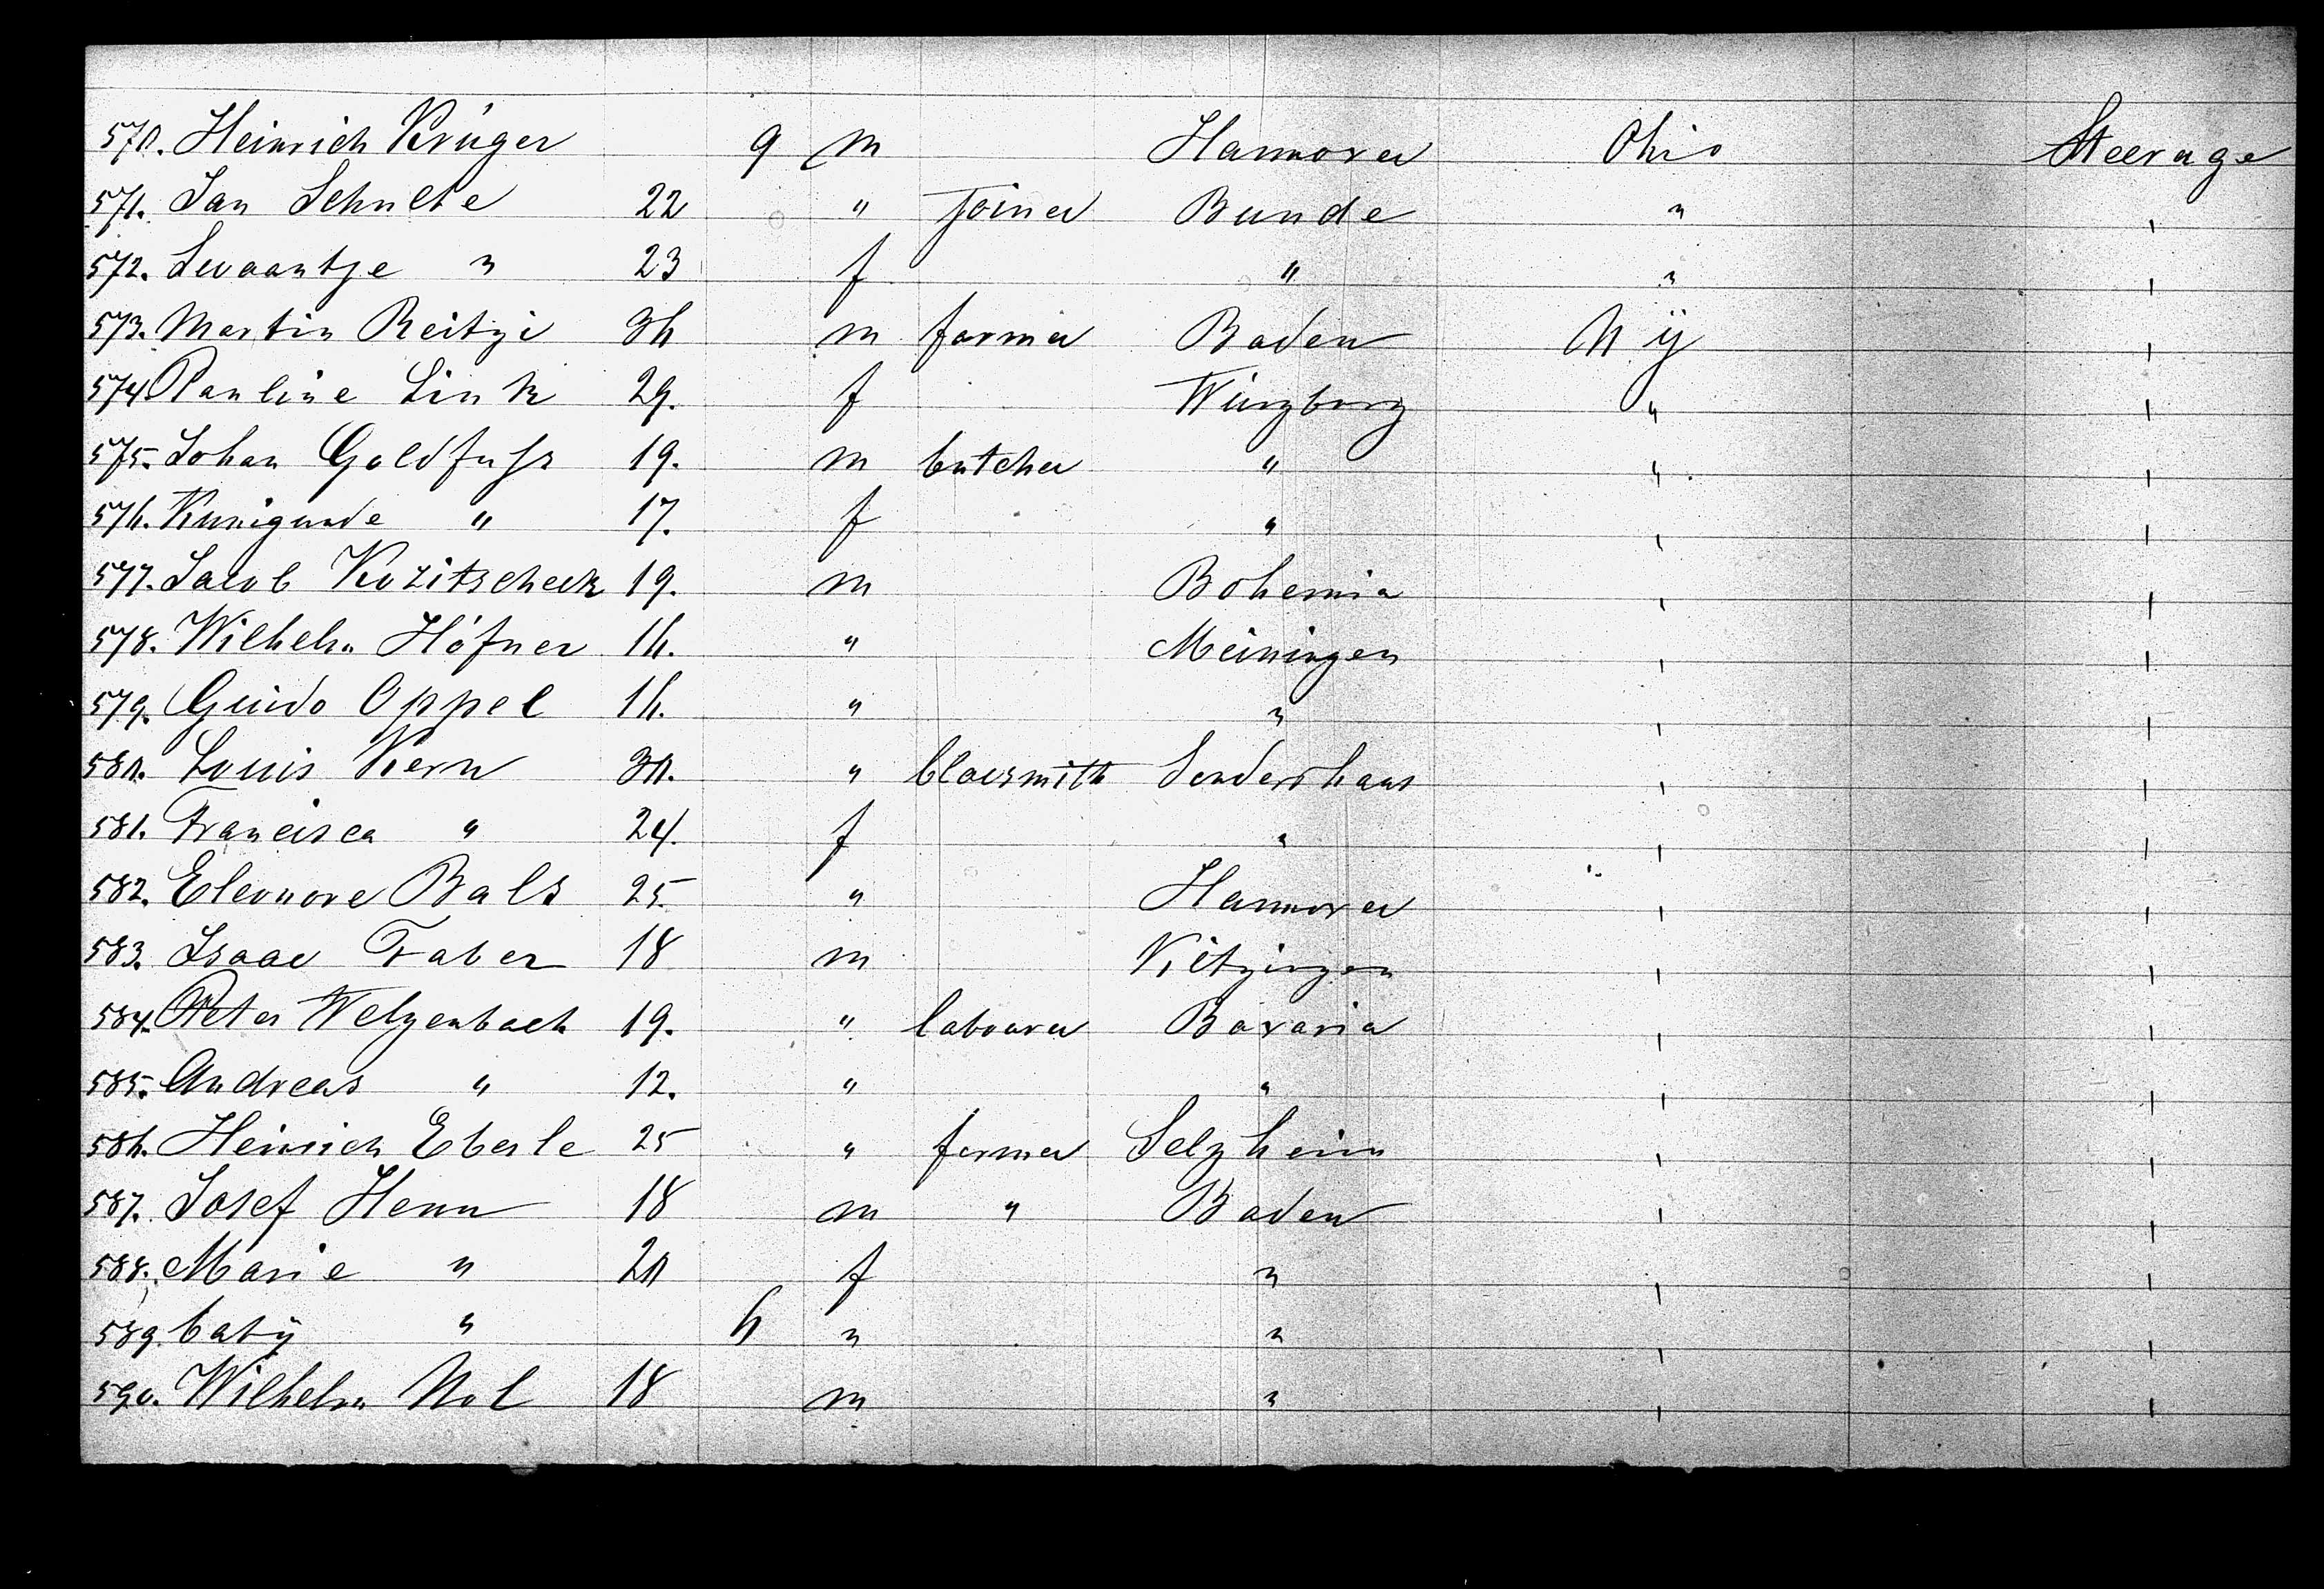 570. Heinrich Krüger 9 m Hannover Ohio Steerage
571. Jan Schulte 22 " joiner Bunde " "
572. Swaantje " 23 f " " "
573. Martin Reitzi 36 m farmer Baden N Y "
574. Pauline Link 29. f Würzburg " "
575. Johan Goldfuss 19. m butcher " " "
576. Kunigunde " 17. f " " "
577. Jacob Kozitscheck 19. m Bohemia " "
578. Wilhelm Höfner 16. " Meiningen " "
579. Guido Oppel 16. " " " "
580. Louis Kern 30. " blacsmith Sondershaus " "
581. Francisca " 24. f " " "
582. Eleonore Bals 25 " Hannover " "
583. Isaac Faber 18 m Kitzingen " "
584. Peter Welzenbach 19. " labourer Bavaria " "
585. Andreas " 12. " " " "
586. Heinrich Eberle 25 " farmer Selzheim " "
587. Josef Henn 18 m " Baden " "
588. Marie " 20 f " " "
589. baby " 6 " " " "
590. Wilhelm Nol 18 m " " "